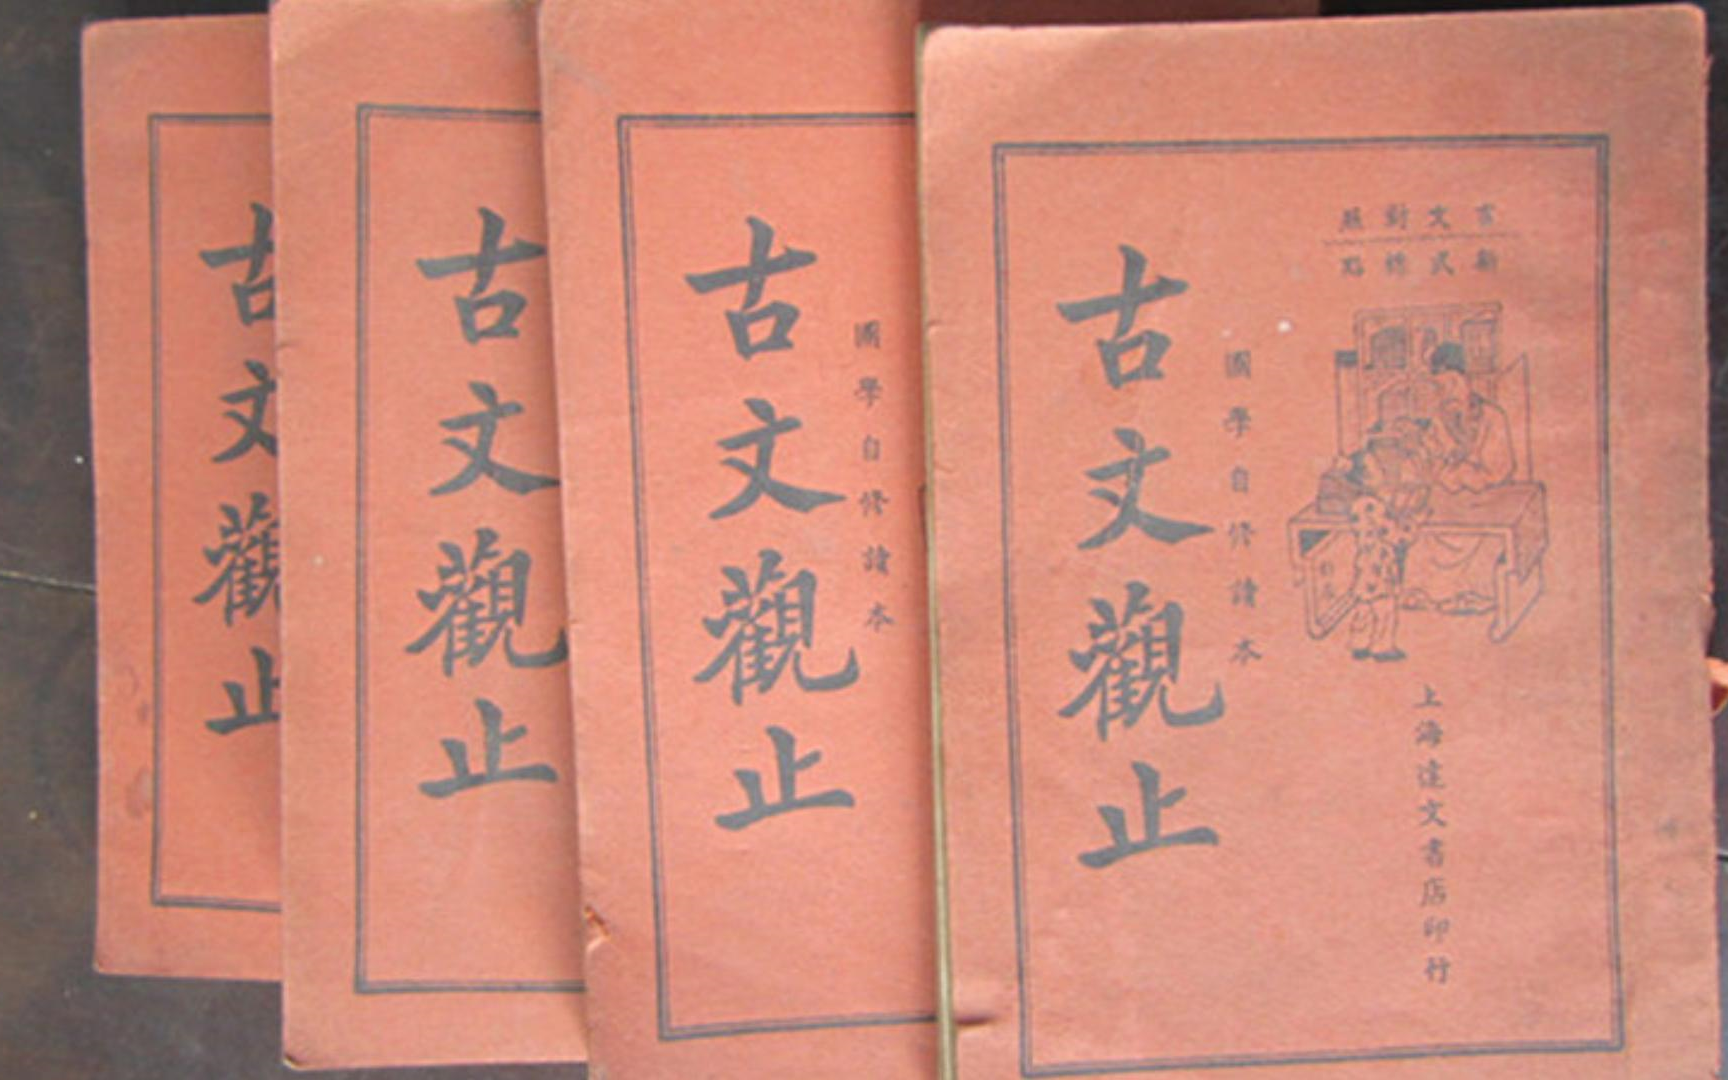 言文對照
新式標點
上海達文書店印行
國學自修讀本
古文觀止
國學自修讀本
古文觀止
古文觀止
古文觀止